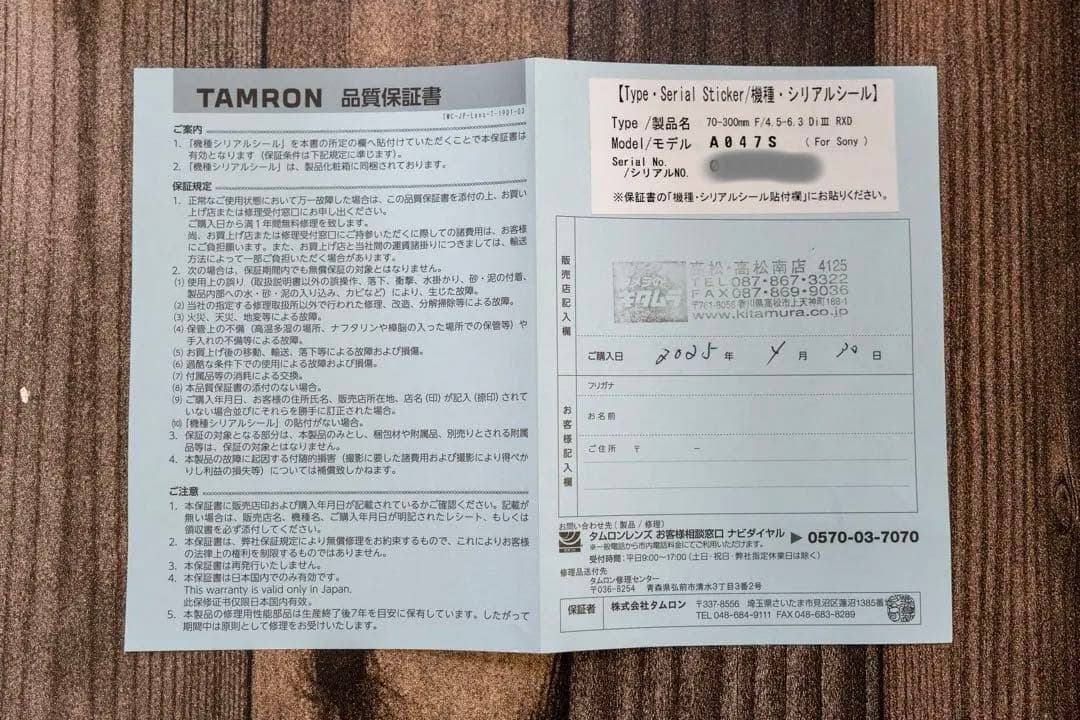 TAMRON 品質保証書
ご案内
1. 「機種シリアルシール」を本書の所定の欄へ貼付けていただくことで本保証書は
有効となります（保証条件は下記規定に準じます）。
2. 「機種シリアルシール」は、製品化粧箱に同梱されております。
保証規定
1. 正常なご使用状態において万一故障した場合は、この品質保証書を添付の上、お買い
上げ店または修理受付窓口にお申し出ください。
ご購入日から満1年間無料修理を致します。
尚、お買上げ店または修理受付窓口にご持参いただくに際しての諸費用は、お客様
にご負担願います。また、お買上げ店と当社間の運賃諸掛りにつきましては、輸送
方法によって一部ご負担いただく場合があります。
2. 次の場合は、保証期間内でも無償保証の対象とはなりません。
(1) 使用上の誤り（取扱説明書以外の誤操作、落下、衝撃、水掛かり、砂・泥の付着、
製品内部への水・砂・泥の入り込み、カビなど）により、生じた故障。
(2) 当社の指定する修理取扱所以外で行われた修理、改造、分解掃除等による故障。
(3) 火災、天災、地変等による故障。
(4) 保管上の不備（高温多湿の場所、ナフタリンや樟脳の入った場所での保管等）や
手入れの不備等による故障。
(5) お買上げ後の移動、輸送、落下等による故障および損傷。
(6) 過酷な条件下での使用による故障および損傷。
(7) 付属品等の消耗による交換。
(8) 本品質保証書の添付のない場合。
(9) ご購入年月日、お客様の住所氏名、販売店所在地、店名（印）が記入（捺印）されて
いない場合並びにそれらを勝手に訂正された場合。
(10) 「機種シリアルシール」の貼付がない場合。
3. 保証の対象となる部分は、本製品のみとし、梱包材や付属品、別売りとされる附属
品等は、保証の対象とはなりません。
4. 本製品の故障に起因する付随的損害（撮影に要した諸費用および撮影により得べか
りし利益の損失等）については補償致しかねます。
ご注意
1. 本保証書に販売店印および購入年月日が記載されているかご確認ください。記載が
無い場合は、販売店名、機種名、ご購入年月日が明記されたレシート、もしくは
領収書を必ず添付してください。
2. 本保証書は、弊社保証規定により無償修理をお約束するもので、これによりお客様
の法律上の権利を制限するものではありません。
3. 本保証書は再発行いたしません。
4. 本保証書は日本国内でのみ有効です。
This warranty is valid only in Japan.
此保修证书仅限日本国内有效。
5. 本製品の修理用性能部品は生産終了後7年を目安に保有しています。したがって
期間中は原則として修理をお受けいたします。
【Type・Serial Sticker/機種・シリアルシール】
Type /製品名 70-300mm F/4.5-6.3 DiⅢ RXD
Model/モデル A047S ( For Sony )
Serial No.
/シリアルNO.
※保証書の「機種・シリアルシール貼付欄」にお貼りください。
販売店記入欄
カメラのキタムラ
高松・高松南店 4125
TEL 087-867-3322
FAX 087-869-9036
〒761-8056 香川県高松市上天神町168-1
www.kitamura.co.jp
ご購入日 2025 年 4 月 30 日
お客様記入欄
フリガナ
お名前
ご住所 〒 －
お問い合わせ先（製品 / 修理）
タムロンレンズ お客様相談窓口 ナビダイヤル ▶ 0570-03-7070
※一般電話から市内電話料金にてご利用いただけます。
受付時間：平日9:00～17:00（土日・祝日・弊社指定休業日は除く）
修理品送付先
タムロン修理センター
〒036-8254 青森県弘前市清水3丁目3番2号
保証者 株式会社タムロン 〒337-8556 埼玉県さいたま市見沼区蓮沼1385番
TEL 048-684-9111 FAX 048-683-8289